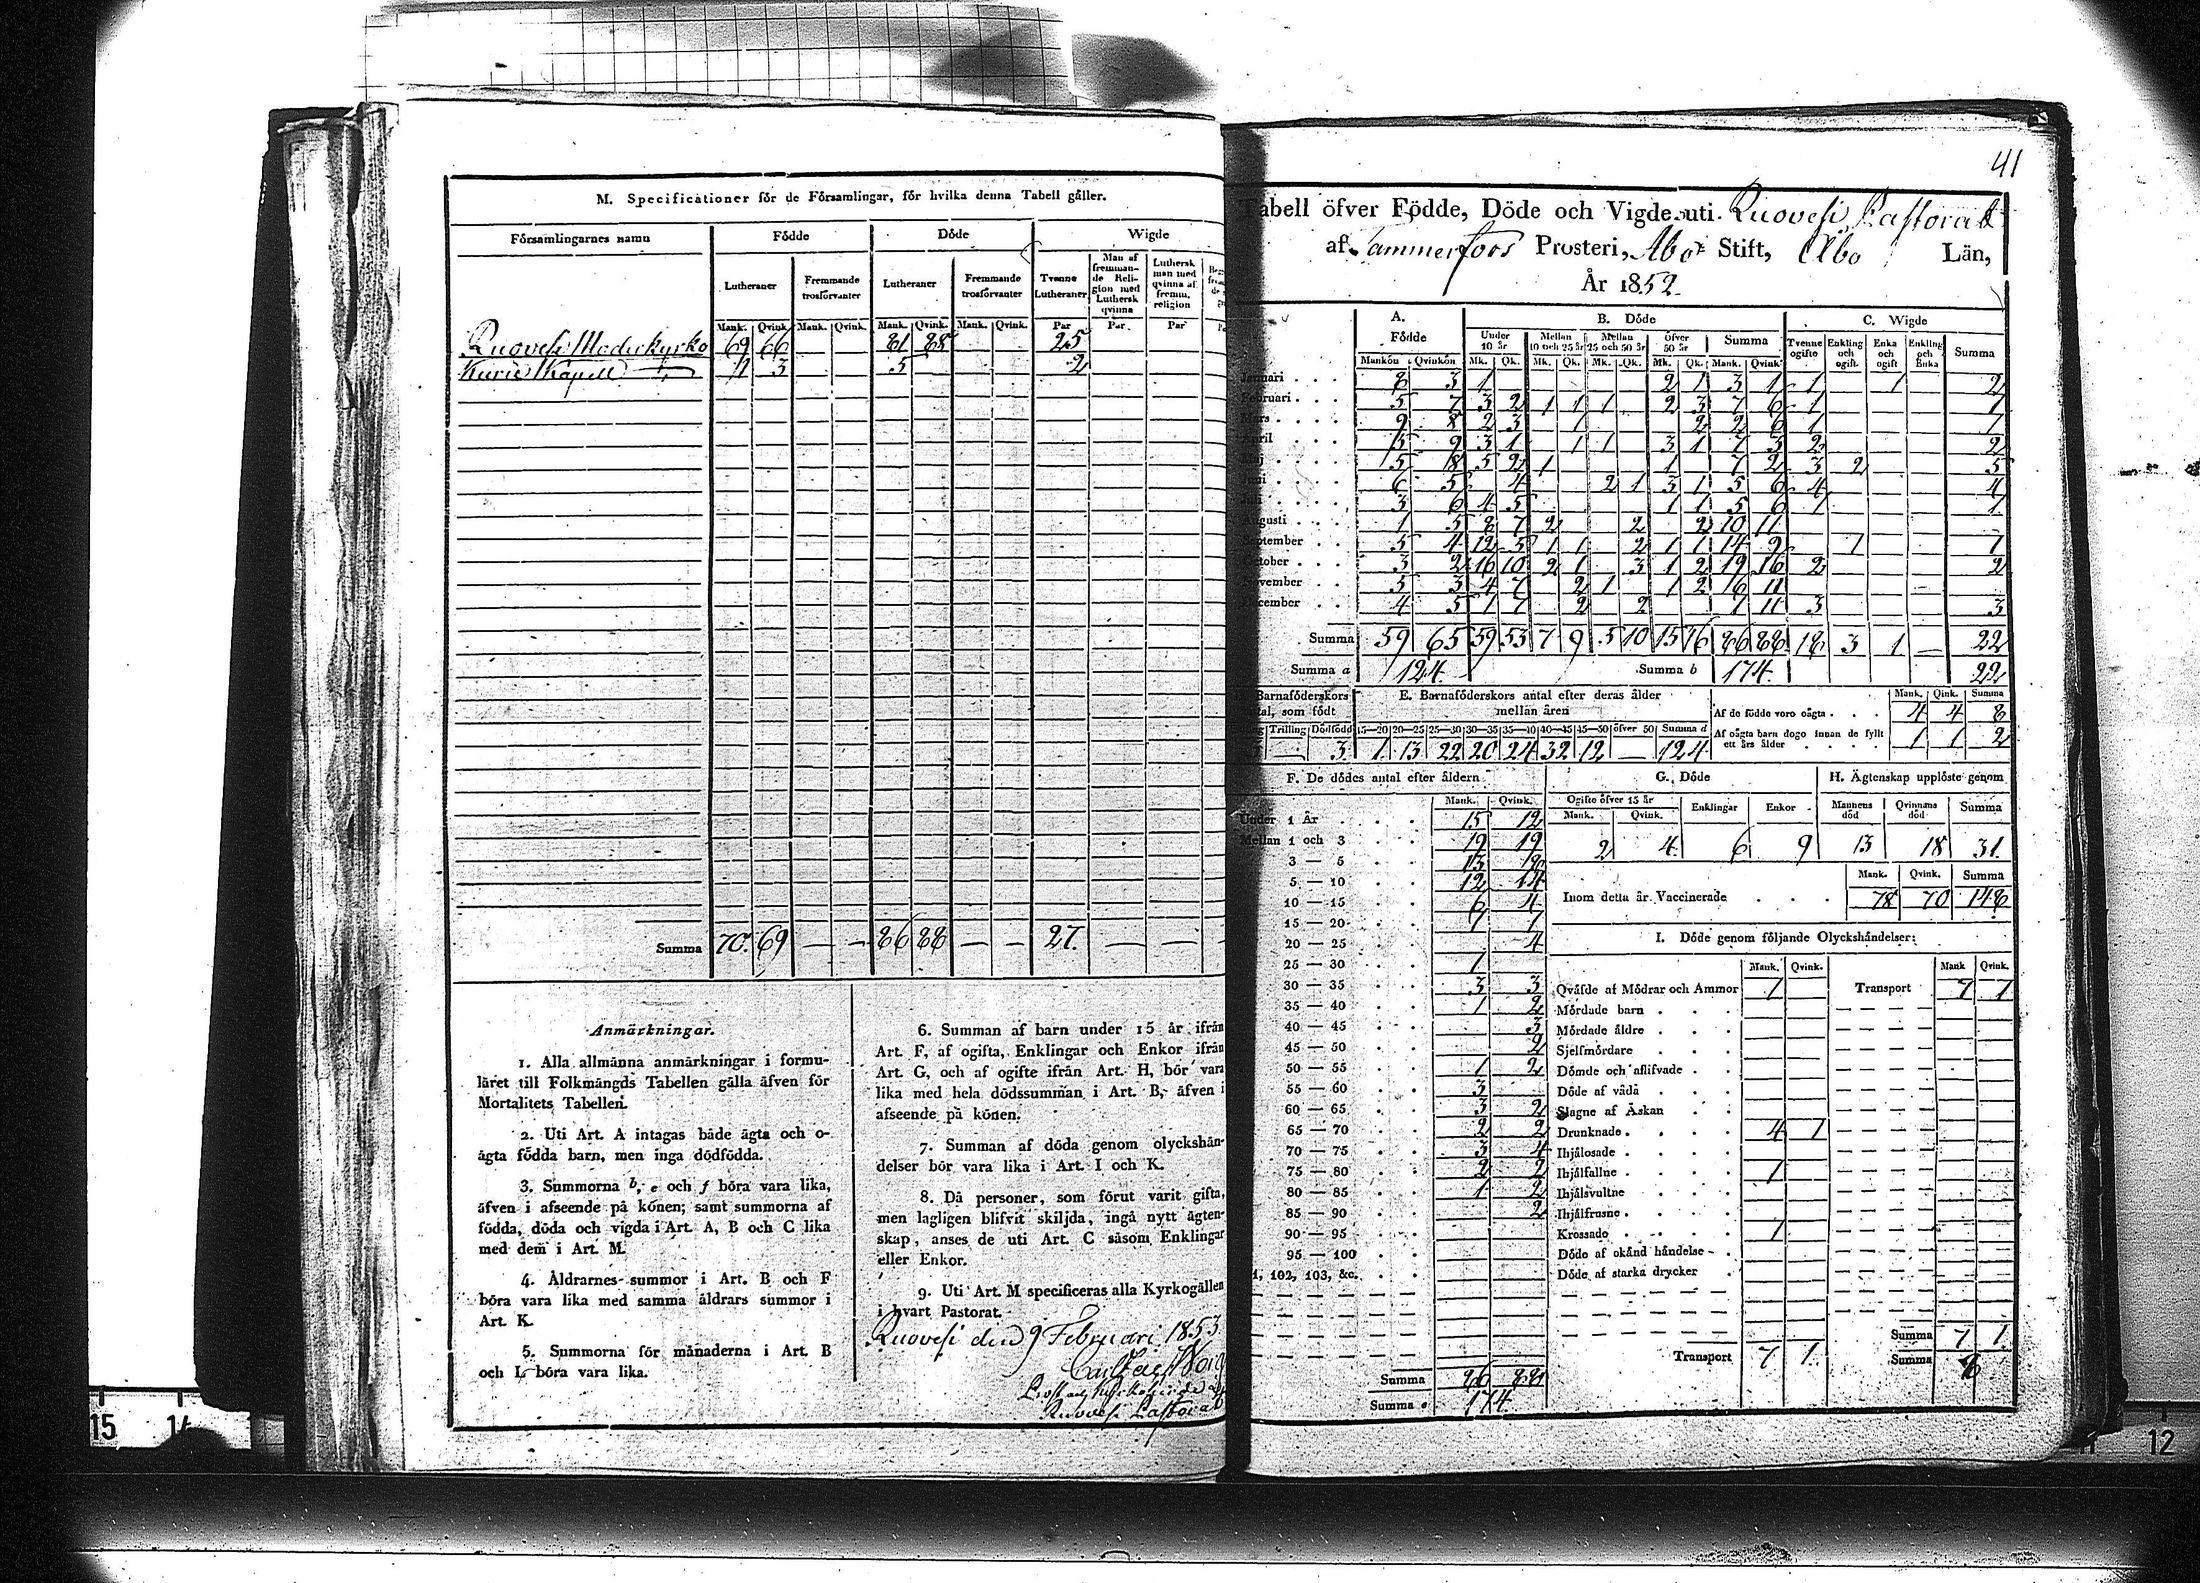 M. Specificationer för de Församlingar, för hvilka denna Tabell gäller.
Församlingarnes namn Födde Döde Wigde
Lutheraner Fremmande trosförvanter Lutheraner Fremmande trosförvanter Tvenne Lutheraner Man af fremmande Religion med Luthersk qvinna Luthersk man med qvinna af fremm. religion
Mank. Qvink. Mank. Qvink. Mank. Qvink. Mank. Qvink. Par Par Par
Ruovesi Moderkyrko 69 66 81 88 25
Kuru Kapell 1 3 5 2
Summa 70 69 — — 86 88 — — 27 — —
Anmärkningar.
1. Alla allmänna anmärkningar i formu-
läret till Folkmängds Tabellen gälla äfven för
Mortalitets Tabellen.
2. Uti Art. A intagas både ägta och o-
ägta födda barn, men inga dödfödda.
3. Summorna b, e och f böra vara lika,
äfven i afseende på könen; samt summorna af
födda, döda och vigda i Art. A, B och C lika
med dem i Art. M.
4. Åldrarnes summor i Art. B och F
böra vara lika med samma åldrars summor i
Art. K.
5. Summorna för månaderna i Art. B
och L böra vara lika.
6. Summan af barn under 15 år ifrån
Art. F, af ogifta, Enklingar och Enkor ifrån
Art. G, och af ogifte ifrån Art. H, bör vara
lika med hela dödssumman i Art. B, äfven i
afseende på könen.
7. Summan af döda genom olyckshän-
delser bör vara lika i Art. I och K.
8. Då personer, som förut varit gifta,
men lagligen blifvit skiljda, ingå nytt ägten-
skap, anses de uti Art. C såsom Enklingar
eller Enkor.
9. Uti Art. M specificeras alla Kyrkogällen
i hvart Pastorat.
Ruovesi den 9 Februari 1853
Ruovesi Pastorat
41
Tabell öfver Födde, Döde och Vigde uti Ruovesi Pastorat
af Tammerfors Prosteri, Åbo Stift, Åbo Län,
År 1852.
A. Födde B. Döde C. Wigde
Under 10 år Mellan 10 och 25 år Mellan 25 och 50 år öfver 50 år Summa Tvenne ogifte Enkling och ogift Enka och ogift Enkling och Enka Summa
Mankön Qvinkön Mk. Qk. Mk. Qk. Mk. Qk. Mk. Qk. Mank. Qvink.
Januari 8 3 1 2 1 3 1 1 1 2
Februari 5 7 3 2 1 1 1 2 3 7 6 1 1
Mars 9 8 2 3 1 2 2 6 1 1
April 5 9 3 1 1 1 3 1 7 3 2 2
Maj 5 18 5 2 1 1 7 2 3 2 5
Juni 6 5 4 2 1 3 1 5 6 4 4
Juli 3 6 4 5 1 1 5 6 1 1
Augusti 1 5 8 7 2 2 2 10 11
September 5 4 12 5 1 1 2 1 1 14 9 1 1
October 3 2 16 10 2 1 3 1 2 19 16 2 2
November 5 3 4 7 2 1 1 2 6 11
December 4 5 1 7 2 2 1 11 3 3
Summa 59 65 59 53 7 9 5 10 15 16 86 88 18 3 1 — 22
Summa a 124 Summa b 174 22
Barnaföderskors E. Barnaföderskors antal efter deras ålder
som födt mellan åren
Trilling Dödfödd 15—20 20—25 25—30 30—35 35—40 40—45 45—50 öfver 50 Summa d
— 3 1 13 22 20 24 32 12 — 124
Mank. Qink. Summa
Af de födde voro oägta 4 4 8
Af oägta barn dogo innan de fyllt ett års ålder 1 1 2
F. De dödes antal efter åldern
Mank. Qvink.
Under 1 År 15 12
Mellan 1 och 3 19 19
3 — 5 13
5 — 10 12 14
10 — 15 6 4
15 — 20 1 1
20 — 25 4
25 — 30 1
30 — 35 3 3
35 — 40 1 2
40 — 45 3
45 — 50 2
50 — 55 1 2
55 — 60 3
60 — 65 3 2
65 — 70 2 2
70 — 75 3 4
75 — 80 2 2
80 — 85 1 2
85 — 90 2
90 — 95
95 — 100
102, 103, &c.
Summa 86 88
Summa e 174
G. Döde
Ogifte öfver 15 år Enklingar Enkor
Mank. Qvink.
2 4 6 9
H. Ägtenskap uplöste genom
Mannens död Qvinnans död Summa
13 18 31
Mank. Qvink. Summa
Inom detta år Vaccinerade 78 70 148
I. Döde genom följande Olyckshändelser:
Mank. Qvink. Mank Qvink.
Qväfde af Mödrar och Ammor 1 Transport 7 1
Mördade barn
Mördade äldre
Sjelfmördare
Dömde och aflifvade
Döde af våda
Slagne af Åskan
Drunknade 4 1
Ihjälosade
Ihjälfallne 1
Ihjälsvultne
Ihjälfrusne
Krossade 1
Döde af okänd händelse
Döde af starka drycker
Summa 7 1
Transport 7 1 Summa 8
15 12